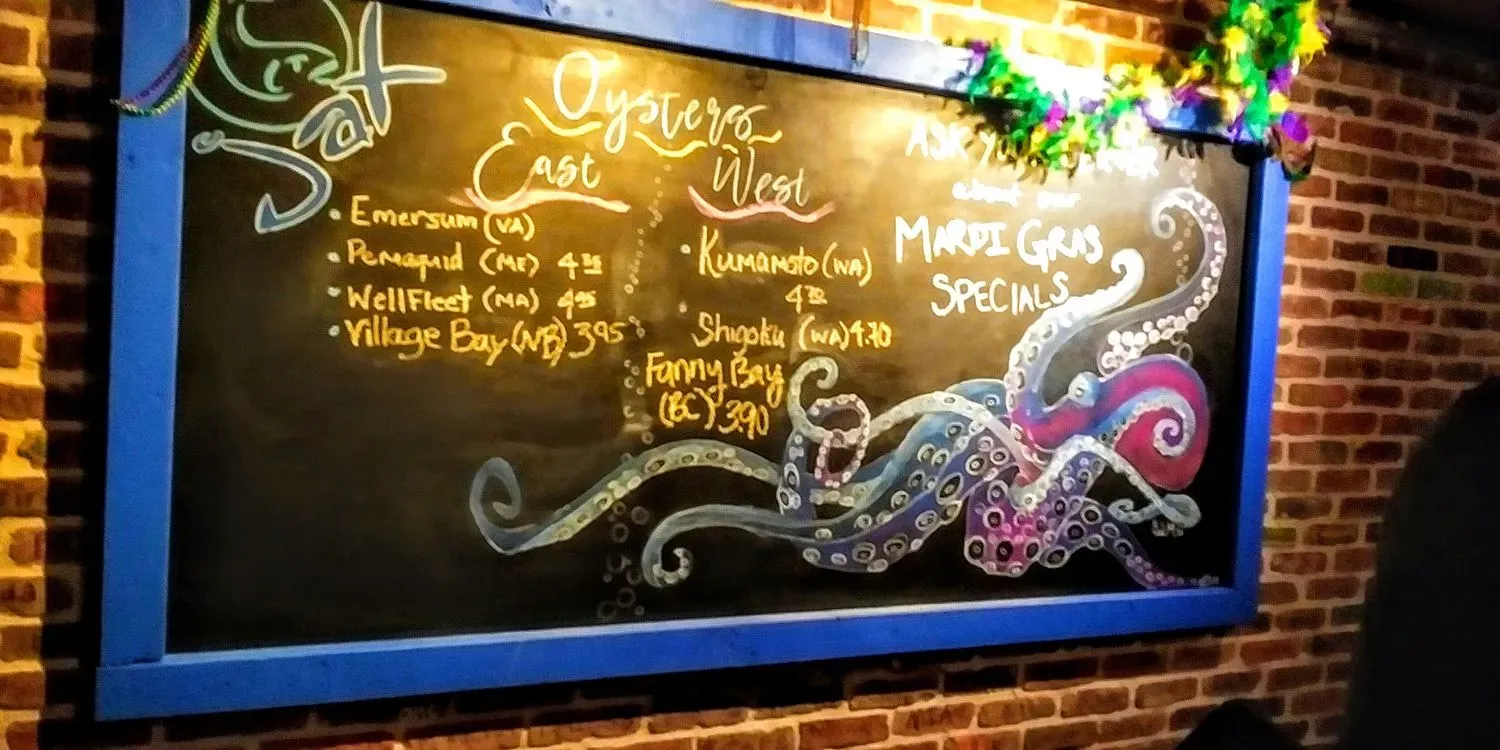 Salt
Oysters
East
• Emersum (VA)
• Pemaquid (ME)
• WellFleet (MA) 4.95
• Village Bay (NB) 3.95
West
• Kumamoto (WA)
• Shigoku (WA) 4.70
Fanny Bay
(BC) 3.90
ASK
about our
MARDI GRAS
SPECIALS